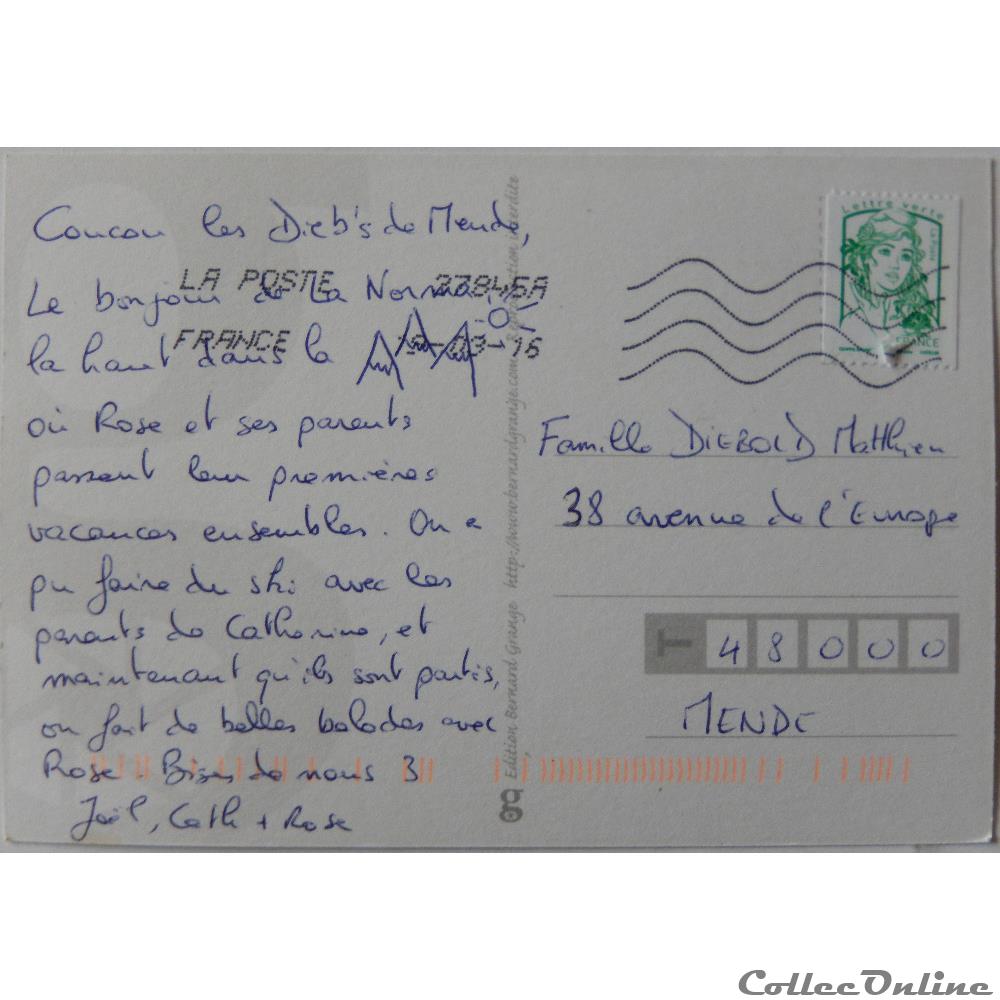 Coucou les Dieb's de Mende,
Le bonjour de la Norma
là haut dans la
où Rose et ses parents
passent leur premières
vacances ensembles. On a
pu faire du ski avec les
parents de Catherine, et
maintenant qu'ils sont partis,
on fait de belles balades avec
Rose. Bises de nous 3
Joël, Cath + Rose
LA POSTE 27845A
FRANCE -03-16
Edition Bernard Grange http://www.bernardgrange.com Reproduction interdite
bg
Lettre verte
La Poste
FRANCE
Famille DIEBOLD Matthieu
38 avenue de l'Europe
T 48000
MENDE
CollecOnline